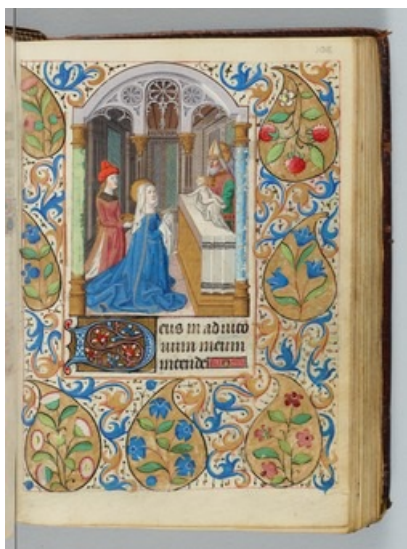 eus in adiuto
rium meum
intende